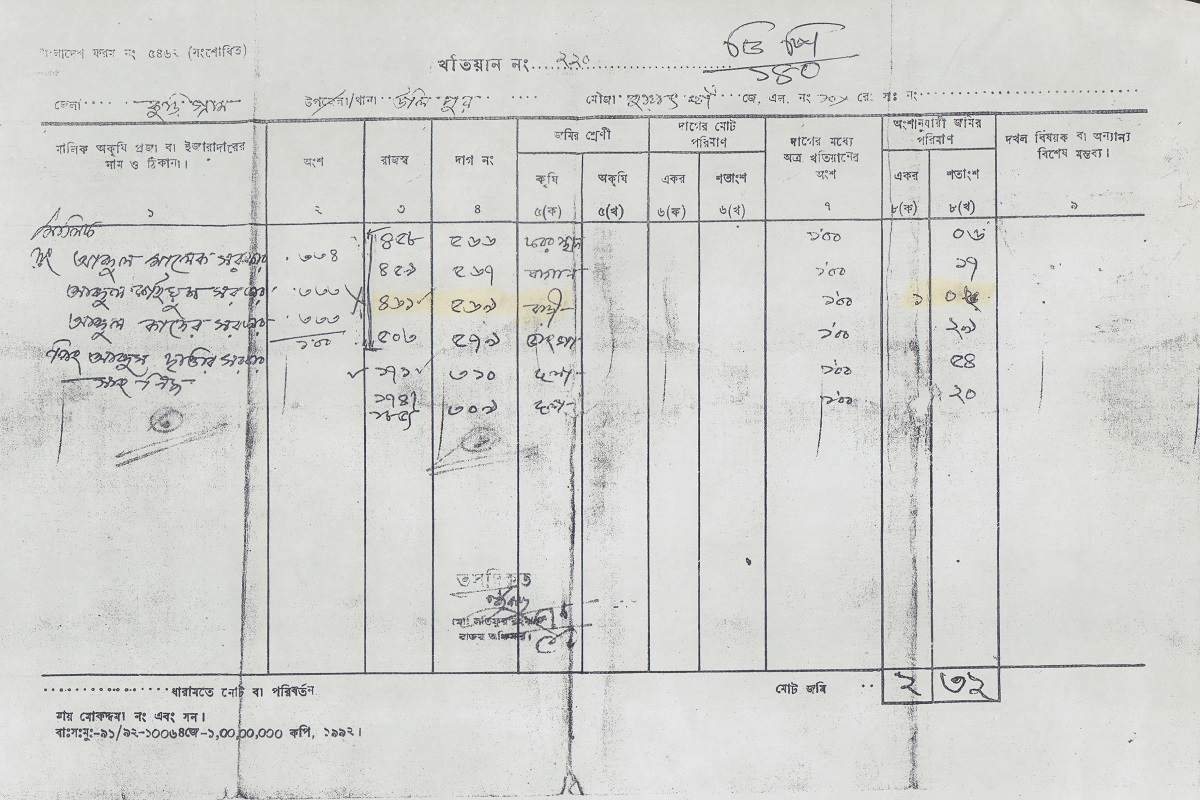 বাংলাদেশ ফরম নং ৫৪৬২ (সংশোধিত)
খতিয়ান নং ২২০
ডি পি
১৪০
জেলা কুড়িগ্রাম উপজেলা/থানা উলিপুর মৌজা জে, এল, নং ১০৯ রে: সাঃ নং
মালিক অকৃষি প্রজা বা ইজারাদারের নাম ও ঠিকানা।
অংশ
রাজস্ব
দাগ নং
জমির শ্রেণী
কৃষি
অকৃষি
দাগের মোট পরিমাণ
একর
শতাংশ
দাগের মধ্যে অত্র খতিয়ানের অংশ
অংশানুযায়ী জমির পরিমাণ
একর
শতাংশ
দখল বিষয়ক বা অন্যান্য বিশেষ মন্তব্য।
১ ২ ৩ ৪ ৫(ক) ৫(খ) ৬(ক) ৬(খ) ৭ ৮(ক) ৮(খ) ৯
৪৫৮ ৫৬৬ ১'০০ ০৬
আব্দুল মালেক সরকার .৩৩৪ ৪৫৯ ৫৬৭ বাগান ১'০০ ১৭
আব্দুল সরকার .৩৩৩ ৪৬১ ৫৬৯ বাড়ী ১'০০ ১
আব্দুল কাদের সরকার .৩৩৩ ৫০৩ ৫৭৯ ১'০০ ২৯
১'০০
পিং আব্দুস ছাত্তার সরকার ১৭১ ৩১০ দলা ১'০০ ৫৪
সাং নিজ ১৭৪১ ৩০৯ দলা ১'০০ ২০
তসদিককৃত
রাজস্ব অফিসার।
ধারামতে নোট বা পরিবর্তন
মোট জমি ২ ৩২
মায় মোকদ্দমা নং এবং সন।
বাঃসঃমুঃ-৯১/৯২-১০০৬৪জে-১,০০,০০,০০০ কপি, ১৯৯২।